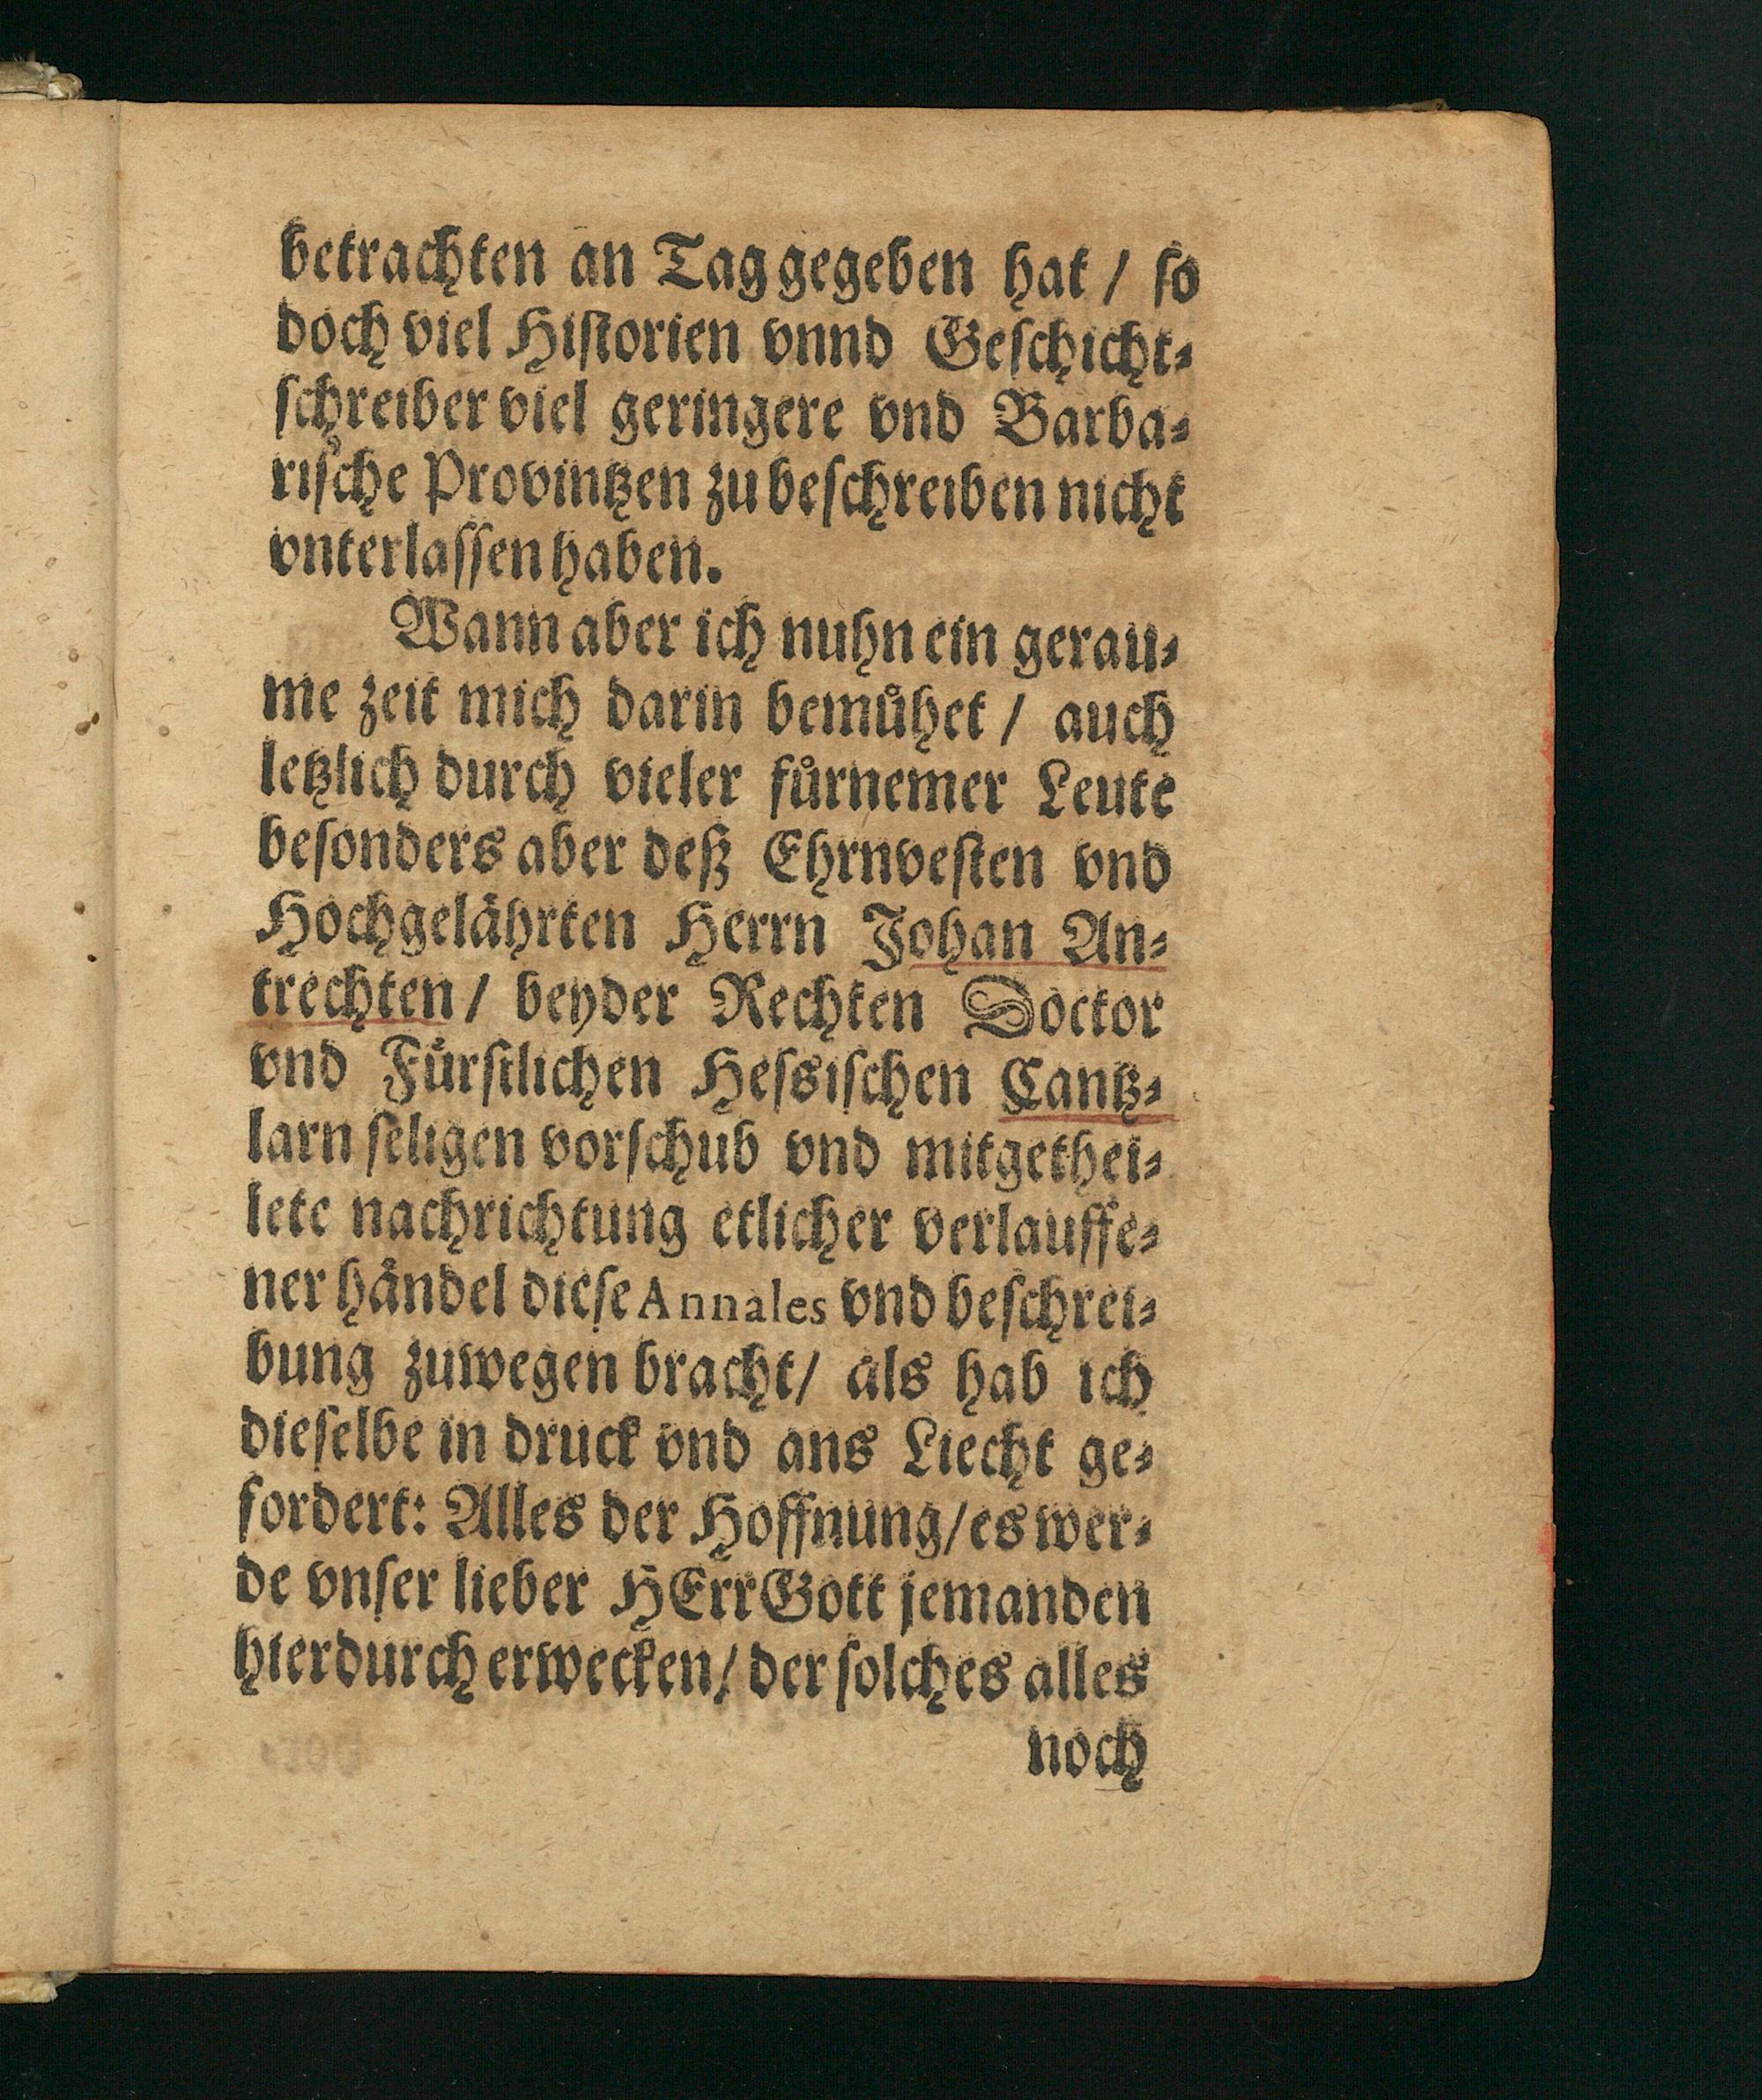 betrachten an Tag gegeben hat / ſo
doch viel Hiſtorien vnnd Geſchicht⸗
ſchreiber viel geringere vnd Barba⸗
riſche Provintzen zu beſchreiben nicht
vnterlaſſen haben.
Wann aber ich nuhn ein gerau⸗
me zeit mich darin bemuͤhet / auch
letzlich durch vieler fuͤrnemer Leute
beſonders aber deß Ehrnveſten vnd
Hochgelaͤhrten Herrn Johan An⸗
trechten / beyder Rechten Doctor
vnd Fuͤrſtlichen Heſsiſchen Cantz⸗
larn ſeligen vorſchub vnd mitgethei⸗
lete nachrichtung etlicher verlauffe⸗
ner haͤndel dieſe Annales vnd beſchrei⸗
bung zuwegen bracht / als hab ich
dieſelbe in druck vnd ans Liecht ge⸗
fordert: Alles der Hoffnung / es wer⸗
de vnſer lieber HErr Gott jemanden
hierdurch erwecken / der ſolches alles
noch